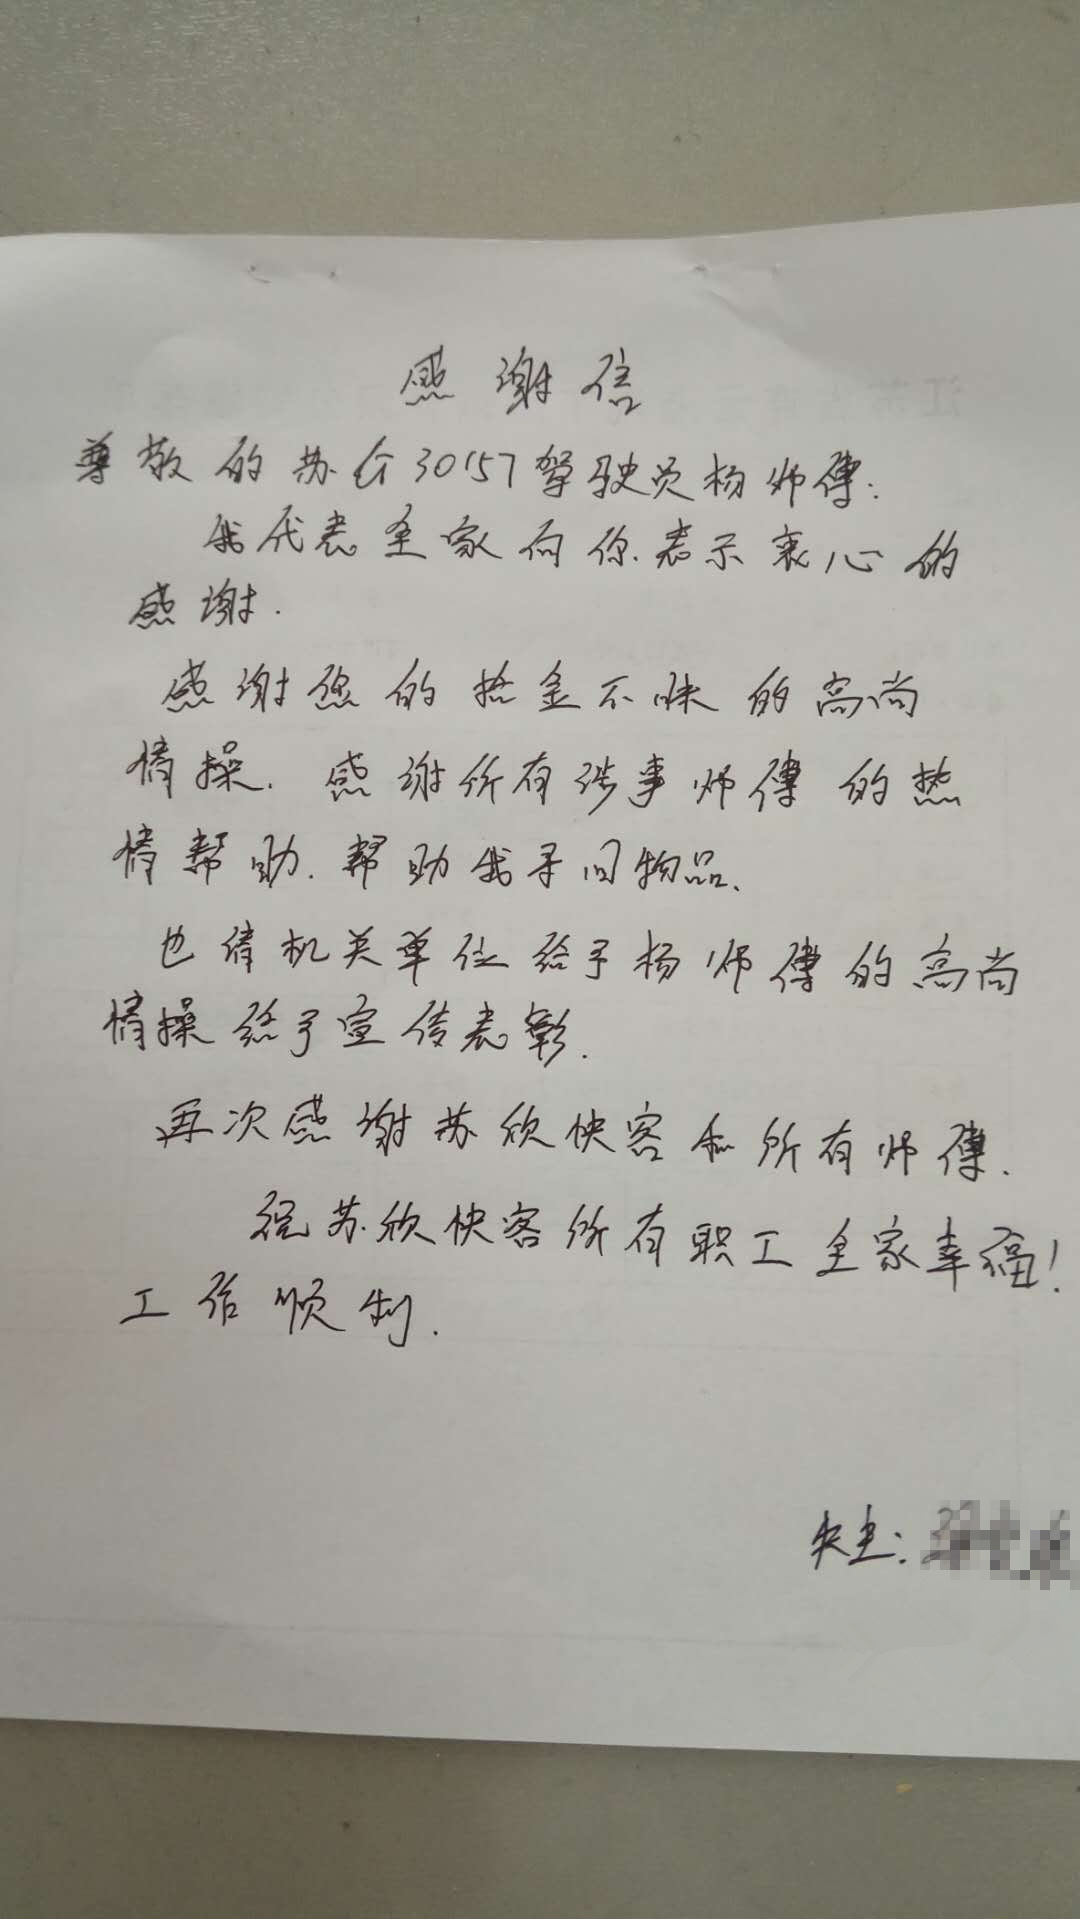 感谢信
尊敬的苏G30157驾驶员杨师傅:
我代表全家向你表示衷心的
感谢.
感谢您的拾金不昧的高尚
情操.感谢所有涉事师傅的热
情帮助.帮助我寻回物品.
也请机关单位给予杨师傅的高尚
情操给予宣传表彰.
再次感谢苏欣快客和所有师傅.
祝苏欣快客所有职工全家幸福!
工作顺利.
失主: